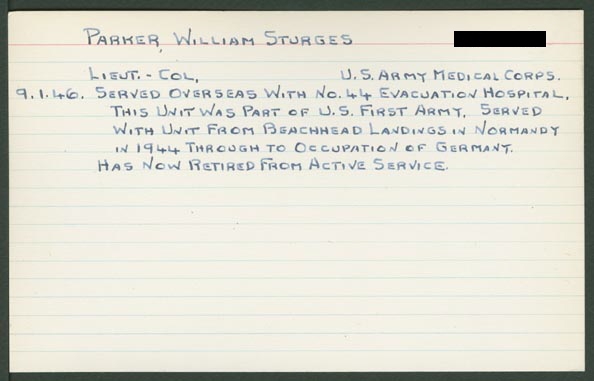 PARKER, WILLIAM STURGES
LIEUT.-COL, U.S. ARMY MEDICAL CORPS.
9.1.46. SERVED OVERSEAS WITH NO. 44 EVACUATION HOSPITAL,
THIS UNIT WAS PART OF U.S. FIRST ARMY. SERVED
WITH UNIT FROM BEACHHEAD LANDINGS IN NORMANDY
IN 1944 THROUGH TO OCCUPATION OF GERMANY.
HAS NOW RETIRED FROM ACTIVE SERVICE.